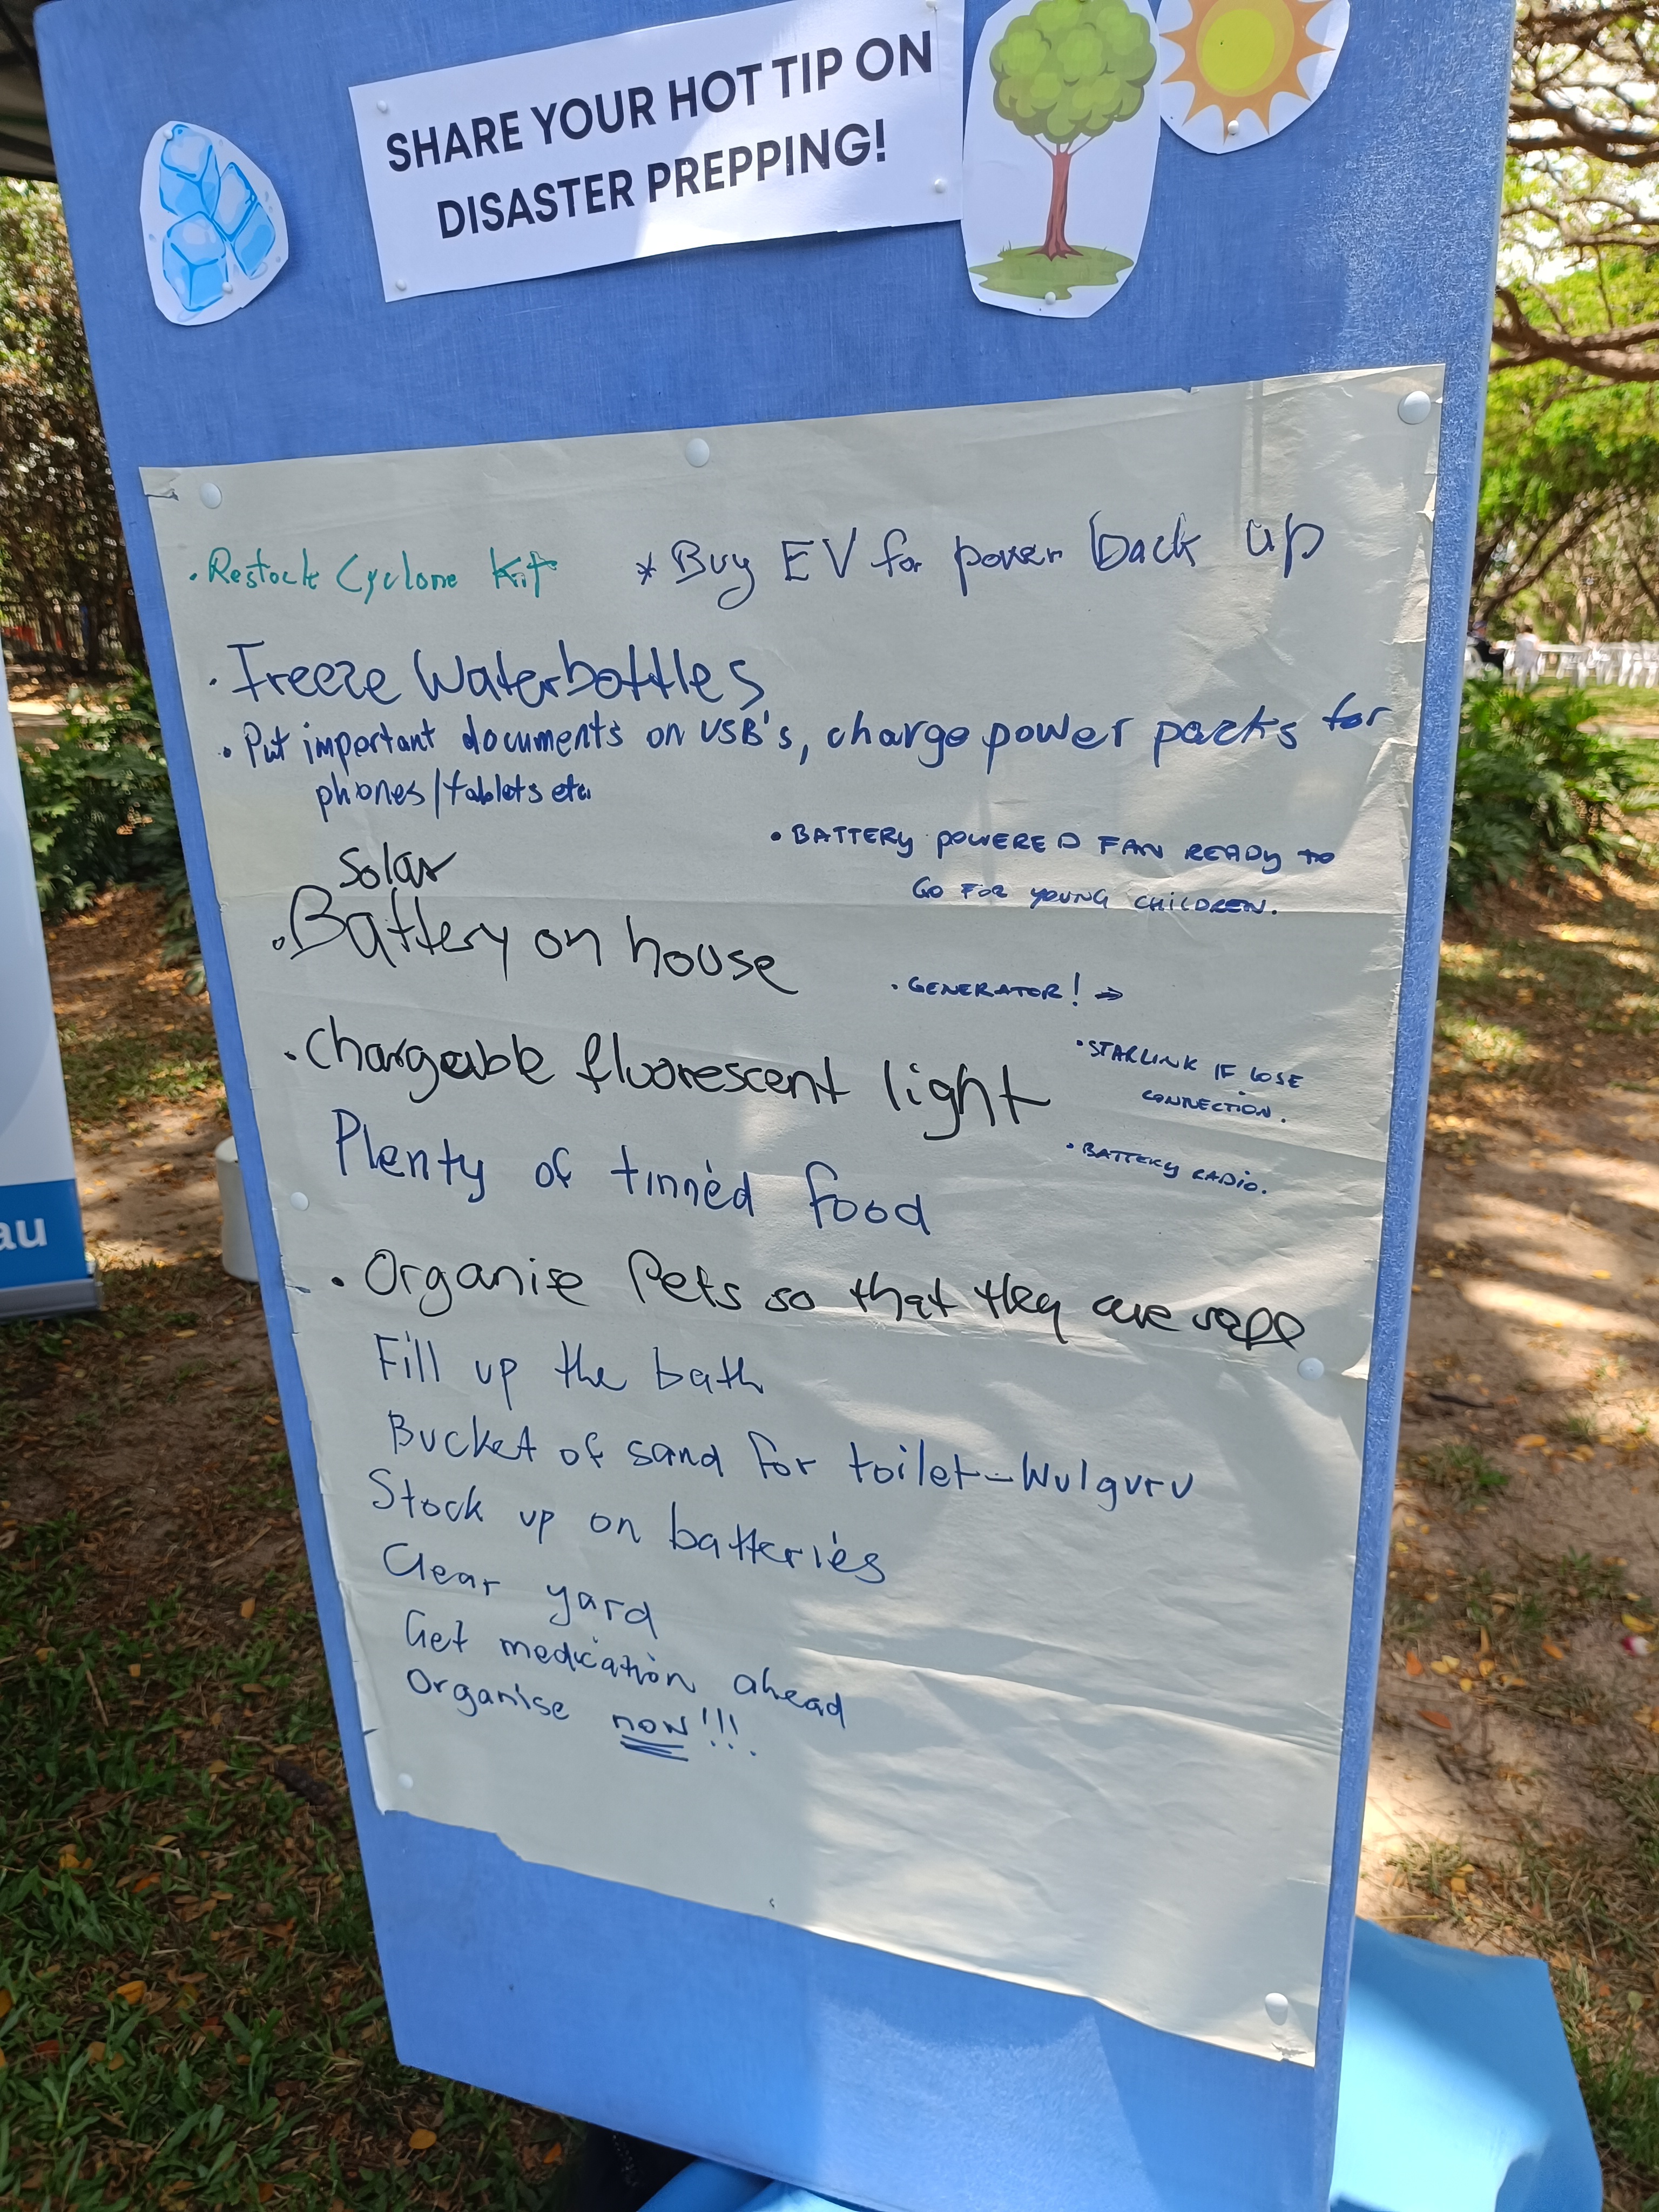 SHARE YOUR HOT TIP ON
DISASTER PREPPING!
• Restock Cyclone Kit
* Buy EV for power back up
• Freeze Waterbottles
• Put important documents on USB's, charge power packs for
phones/tablets etc.
• BATTERY POWERED FAN READY TO
GO FOR YOUNG CHILDREN.
Solar
• Battery on house
• GENERATOR! →
• Chargeable fluorescent light
• STARLINK IF LOSE
CONNECTION.
Plenty of tinned food
• BATTERY RADIO.
• Organise Pets so that they are safe
Fill up the bath
Bucket of sand for toilet - Wulguru
Stock up on batteries
Clear yard
Get medication ahead
Organise now!!!.
au